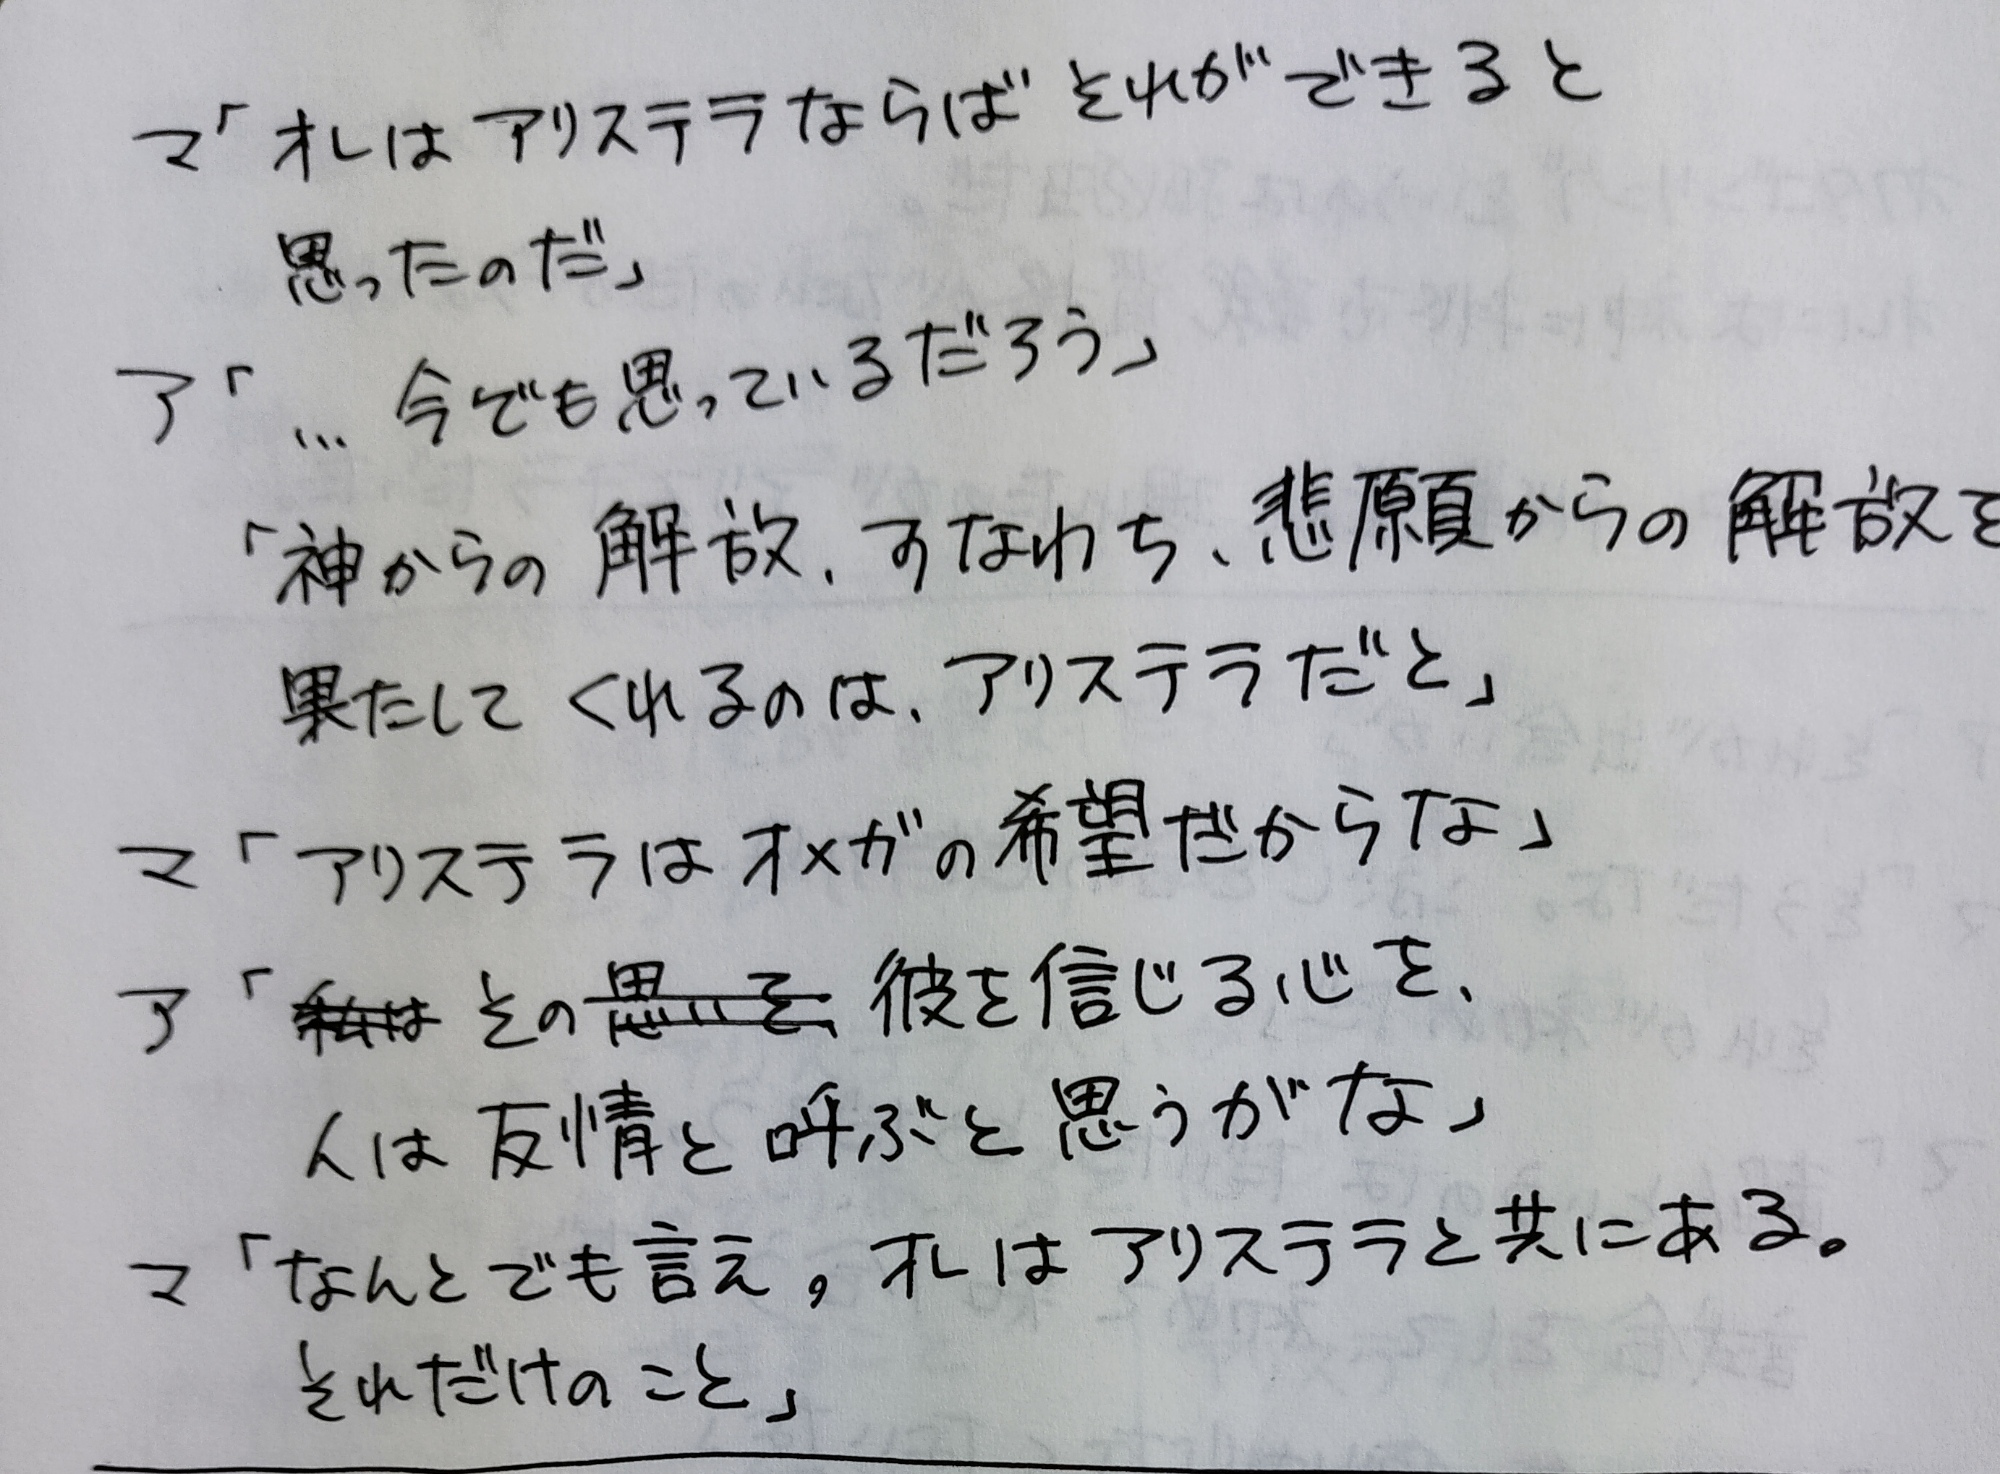 マ「オレはアリステラならばそれができると
思ったのだ」
ア「…今でも思っているだろう」
「神からの解放、すなわち、悲願からの解放を
果たしてくれるのは、アリステラだと」
マ「アリステラはオメガの希望だからな」
ア「私はその思いを、彼を信じる心を、
人は友情と呼ぶと思うがな」
マ「なんとでも言え。オレはアリステラと共にある。
それだけのこと」